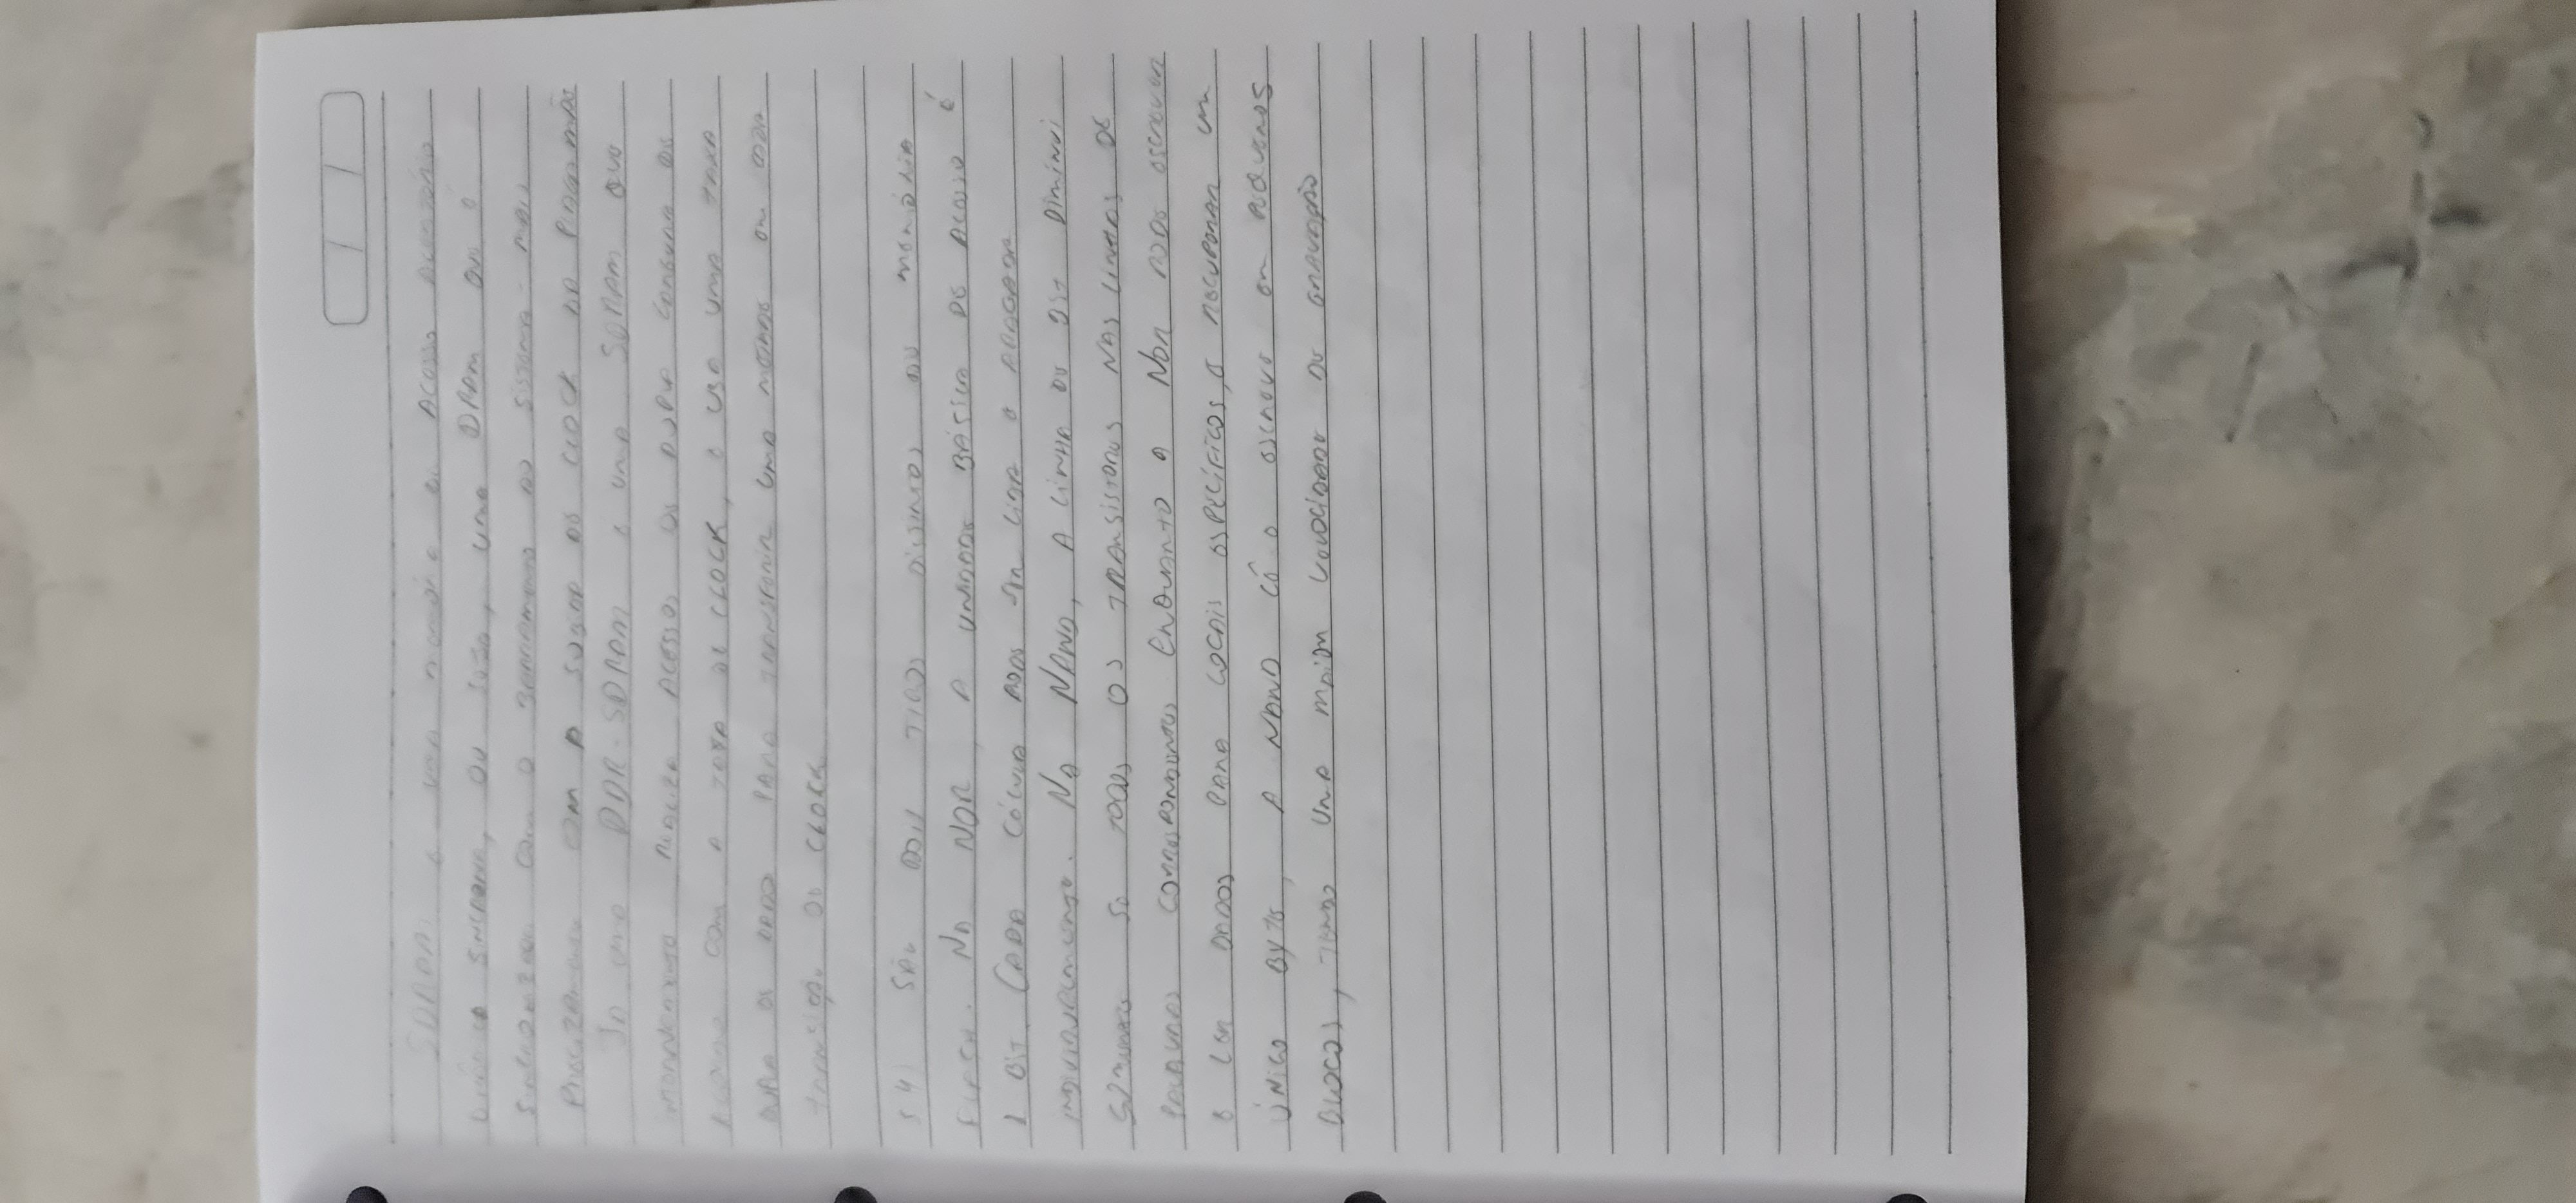 SDRAM é uma memória de acesso aleatório
dinâmica síncrona, ou seja, uma DRAM que é
sincronizada com o barramento do sistema - mais
precisamente com a subida do clock da placa mãe
Já uma DDR-SDRAM é uma SDRAM que
internamente realiza acessos de dupla largura de
acordo com a taxa de clock, e usa uma taxa
dupla de dados para transferir uma metade em cada
transição de clock
5.4) São dois tipos distintos de memória
flash. Na NOR, a unidade básica de acesso é
1 bit. Cada célula pode ser lida e apagada
individualmente. Na NAND, a linha de bit diminui
somente se todos os transistores nas linhas de
palavras correspondentes Enquanto a NOR pode escrever
e ler dados para locais específicos, e recuperar um
único byte, a NAND lê e escreve em pequenos
blocos, tendo uma maior velocidade de gravação